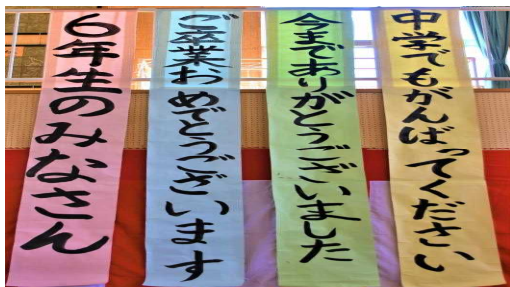 6年生のみなさん
ご卒業おめでとうございます
今までありがとうございました
中学でもがんばってください